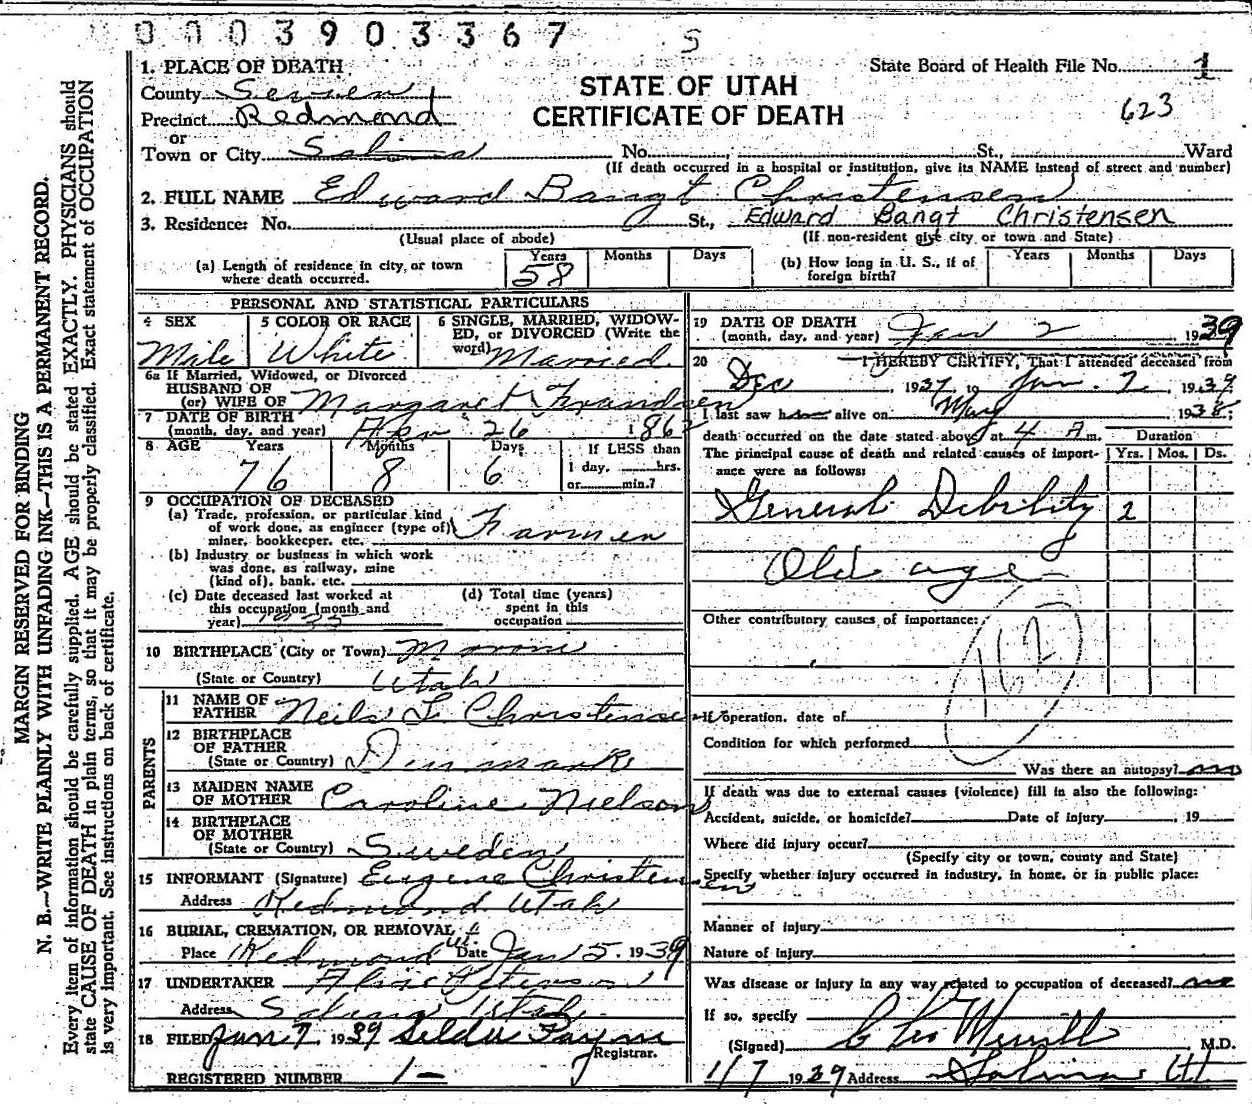 0003903367
S
1. PLACE OF DEATH
County Sevier
Precinct Redmond
or
Town or City Salina No. St., Ward
STATE OF UTAH
CERTIFICATE OF DEATH
State Board of Health File No. 1
623
(If death occurred in a hospital or institution, give its NAME instead of street and number)
2. FULL NAME Edward Bangt Christensen
3. Residence: No. St., Edward Bangt Christensen
(Usual place of abode) (If non-resident give city or town and State)
(a) Length of residence in city, or town where death occurred. Years 58 Months Days
(b) How long in U. S., if of foreign birth? Years Months Days
PERSONAL AND STATISTICAL PARTICULARS
4 SEX Male
5 COLOR OR RACE White
6 SINGLE, MARRIED, WIDOWED, OR DIVORCED (Write the word) Married
6a If Married, Widowed, or Divorced
HUSBAND OF
(or) WIFE OF Margaret Frandsen
7 DATE OF BIRTH
(month, day, and year) Apr 26 1862
8 AGE Years 76 Months 8 Days 6 If LESS than
1 day, hrs.
or min.?
9 OCCUPATION OF DECEASED
(a) Trade, profession, or particular kind
of work done, as engineer (type of)
miner, bookkeeper, etc. Farmer
(b) Industry or business in which work
was done, as railway, mine
(kind of), bank, etc.
(c) Date deceased last worked at
this occupation (month and
year) 1935
(d) Total time (years)
spent in this
occupation
10 BIRTHPLACE (City or Town) Moroni
(State or Country) Utah
PARENTS
11 NAME OF
FATHER Neils L Christensen
12 BIRTHPLACE
OF FATHER
(State or Country) Denmark
13 MAIDEN NAME
OF MOTHER Caroline Nielson
14 BIRTHPLACE
OF MOTHER
(State or Country) Sweden
15 INFORMANT (Signature) Eugene Christensen
Address Redmond Utah
16 BURIAL, CREMATION, OR REMOVAL
Place Redmond Ut. Date Jan 5. 1939
17 UNDERTAKER Peterson
Address Salina Utah
18 FILED Jan 7 1939 Payne
Registrar.
REGISTERED NUMBER 1-
19 DATE OF DEATH
(month, day, and year) Jan 2 1939
20 I HEREBY CERTIFY, That I attended deceased from
Dec 1937, to Jan. 2, 1939
I last saw h alive on May 1938;
death occurred on the date stated above, at 4 A m.
Duration
The principal cause of death and related causes of importance were as follows: Yrs. Mos. Ds.
General Debility 2
Old age
Other contributory causes of importance:
162
If operation, date of
Condition for which performed
Was there an autopsy? no
If death was due to external causes (violence) fill in also the following:
Accident, suicide, or homicide? Date of injury , 19
Where did injury occur?
(Specify city or town, county and State)
Specify whether injury occurred in industry, in home, or in public place:
Manner of injury
Nature of injury
Was disease or injury in any way related to occupation of deceased? no
If so, specify
(Signed) Merrill, M.D.
1/7 1939 Address Salina Ut
MARGIN RESERVED FOR BINDING
N. B.—WRITE PLAINLY WITH UNFADING INK—THIS IS A PERMANENT RECORD.
Every item of information should be carefully supplied. AGE should be stated EXACTLY. PHYSICIANS should
state CAUSE OF DEATH in plain terms, so that it may be properly classified. Exact statement of OCCUPATION
is very important. See instructions on back of certificate.